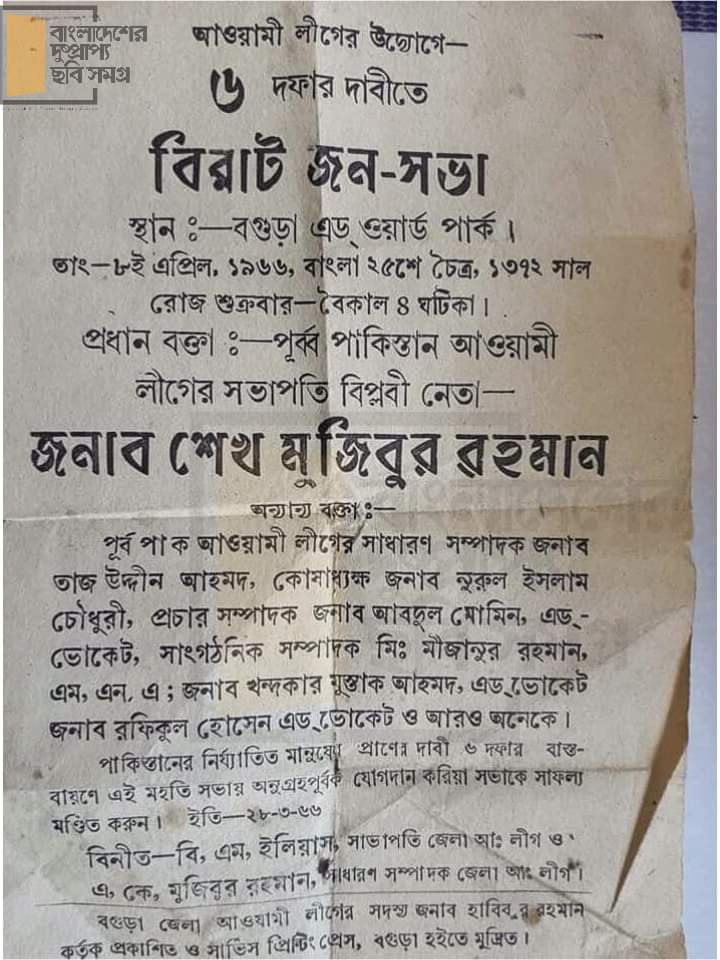 বাংলাদেশের
দুষ্প্রাপ্য
ছবি সমগ্র
আওয়ামী লীগের উদ্যোগে—
৬ দফার দাবীতে
বিরাট জন-সভা
স্থান ঃ—বগুড়া এড্ওয়ার্ড পার্ক।
তাং—৮ই এপ্রিল, ১৯৬৬, বাংলা ২৫শে চৈত্র, ১৩৭২ সাল
রোজ শুক্রবার—বৈকাল ৪ ঘটিকা।
প্রধান বক্তা ঃ—পূর্ব্ব পাকিস্তান আওয়ামী
লীগের সভাপতি বিপ্লবী নেতা—
জনাব শেখ মুজিবুর রহমান
অন্যান্য বক্তা ঃ—
পূর্ব পাক আওয়ামী লীগের সাধারণ সম্পাদক জনাব
তাজ উদ্দীন আহমদ, কোষাধ্যক্ষ জনাব নুরুল ইসলাম
চৌধুরী, প্রচার সম্পাদক জনাব আবদুল মোমিন, এড্-
ভোকেট, সাংগঠনিক সম্পাদক মিঃ মীজানুর রহমান,
এম, এন, এ ; জনাব খন্দকার মুস্তাক আহমদ, এড্ভোকেট
জনাব রফিকুল হোসেন এড্ভোকেট ও আরও অনেকে।
পাকিস্তানের নির্য্যাতিত মানুষের প্রাণের দাবী ৬ দফার বাস্ত-
বায়ণে এই মহতি সভায় অনুগ্রহপূর্বক যোগদান করিয়া সভাকে সাফল্য
মণ্ডিত করুন। ইতি—২৮-৩-৬৬
বিনীত—বি, এম, ইলিয়াস, সাভাপতি জেলা আঃ লীগ ও
এ, কে, মুজিবুর রহমান, সাধারণ সম্পাদক জেলা আঃ লীগ।
বগুড়া জেলা আওয়ামী লীগের সদস্য জনাব হাবিবুর রহমান
কর্তৃক প্রকাশিত ও সার্ভিস প্রিন্টিং প্রেস, বগুড়া হইতে মুদ্রিত।